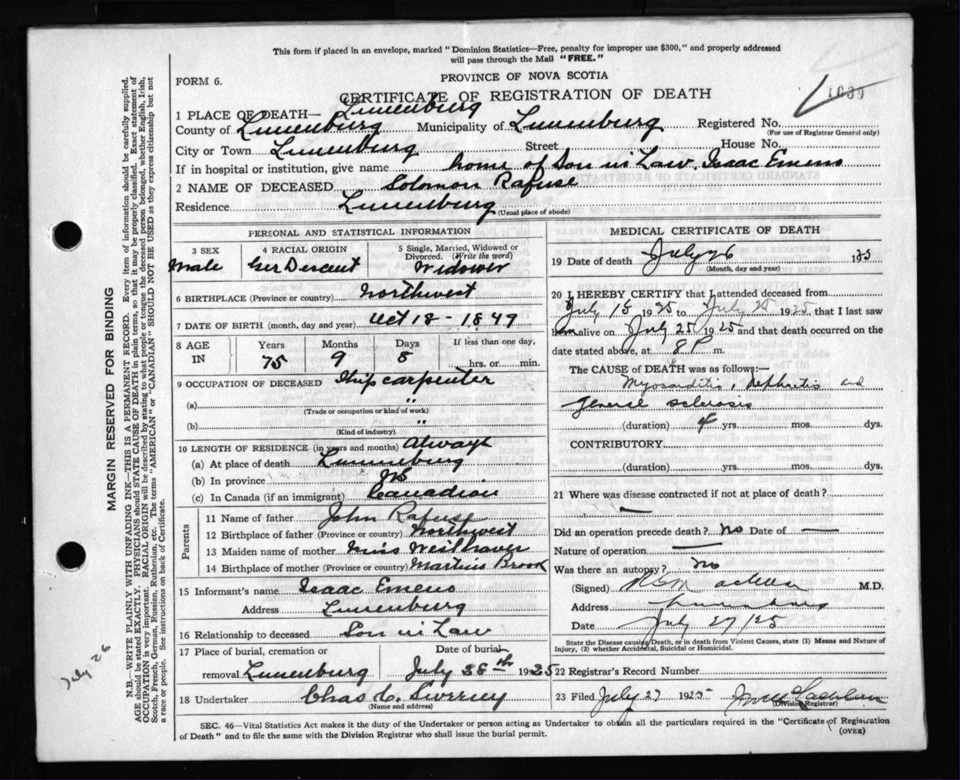 This form if placed in an envelope, marked "Dominion Statistics—Free, penalty for improper use $300," and properly addressed
will pass through the Mail "FREE."
FORM 6.
PROVINCE OF NOVA SCOTIA
CERTIFICATE OF REGISTRATION OF DEATH
1039
1 PLACE OF DEATH— Lunenburg
County of Lunenburg Municipality of Lunenburg Registered No.
(For use of Registrar General only)
City or Town Lunenburg Street House No.
If in hospital or institution, give name home of Son in Law. Isaac Emeno
2 NAME OF DECEASED Solomon Rafuse
Residence Lunenburg
(Usual place of abode)
PERSONAL AND STATISTICAL INFORMATION
3 SEX
Male
4 RACIAL ORIGIN
Ger Descent
5 Single, Married, Widowed or
Divorced. (Write the word)
Widower
6 BIRTHPLACE (Province or country) Northwest
7 DATE OF BIRTH (month, day and year) Oct 18 - 1849
8 AGE
IN
Years
75
Months
9
Days
8
If less than one day,
hrs. or min.
9 OCCUPATION OF DECEASED Ship carpenter
(a) "
(Trade or occupation or kind of work)
(b) "
(Kind of industry)
10 LENGTH OF RESIDENCE (in years and months) Always
(a) At place of death Lunenburg
(b) In province
(c) In Canada (if an immigrant) Canadian
Parents
11 Name of father John Rafuse
12 Birthplace of father (Province or country) Northwest
13 Maiden name of mother Miss Westhaver
14 Birthplace of mother (Province or country) Martins Brook
15 Informant's name Isaac Emeno
Address Lunenburg
16 Relationship to deceased Son in Law
17 Place of burial, cremation or
Date of burial
removal Lunenburg July 28th 1925
18 Undertaker Chas C. Sweeney
(Name and address)
MEDICAL CERTIFICATE OF DEATH
19 Date of death July 26 1925
(Month, day and year)
20 I HEREBY CERTIFY that I attended deceased from
July 15 1925 to July 25 1925, that I last saw
him alive on July 25 1925 and that death occurred on the
date stated above, at 8 P m.
The CAUSE of DEATH was as follows:—
Myocarditis, Nephritis and
sclerosis
(duration) 4 yrs. mos. dys.
CONTRIBUTORY
(duration) yrs. mos. dys.
21 Where was disease contracted if not at place of death?
—
Did an operation precede death? No Date of —
Nature of operation —
Was there an autopsy? No
(Signed) M.D.
Address Lunenburg
Date July 27/25
State the Disease causing Death, or in death from Violent Causes, state (1) Means and Nature of
Injury, (2) whether Accidental, Suicidal or Homicidal.
22 Registrar's Record Number
23 Filed July 27 1925
(Division Registrar)
SEC. 46—Vital Statistics Act makes it the duty of the Undertaker or person acting as Undertaker to obtain all the particulars required in the "Certificate of Registration
of Death" and to file the same with the Division Registrar who shall issue the burial permit.
(OVER)
MARGIN RESERVED FOR BINDING
N.B.—WRITE PLAINLY WITH UNFADING INK—THIS IS A PERMANENT RECORD. Every item of information should be carefully supplied.
AGE should be stated EXACTLY. PHYSICIANS should STATE CAUSE OF DEATH in plain terms, so that it may be properly classified. Exact statement of
OCCUPATION is very important. RACIAL ORIGIN will be described by stating to what people or tongue the deceased person belonged, whether English, Irish,
Scotch, French, German, Russian, Ruthenian, etc. The terms "AMERICAN" or "CANADIAN" SHOULD NOT BE USED as they express citizenship but not
a race or people. See instructions on back of Certificate.
July 26